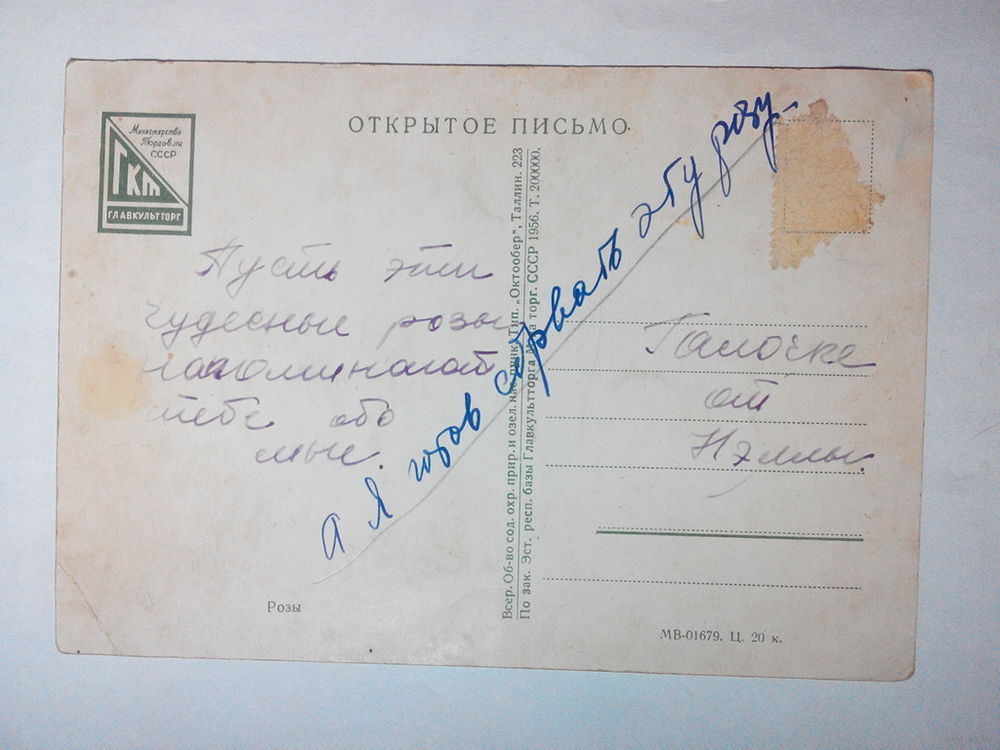 ОТКРЫТОЕ ПИСЬМО
Министерство
Торговли
СССР
ГКТ
ГЛАВКУЛЬТТОРГ
Пусть эти
чудесные розы
напоминают
тебе обо
мне.
а я готов сорвать эту розу.
Галочке
от
Нэллы.
Всер. Об-во сод. охр. прир. и озел. нас. пункт. Тип. „Октообер", Таллин. 223
По зак. Эст. респ. базы Главкультторга М-ва торг. СССР 1956. Т. 200000.
Розы
МВ-01679. Ц. 20 к.